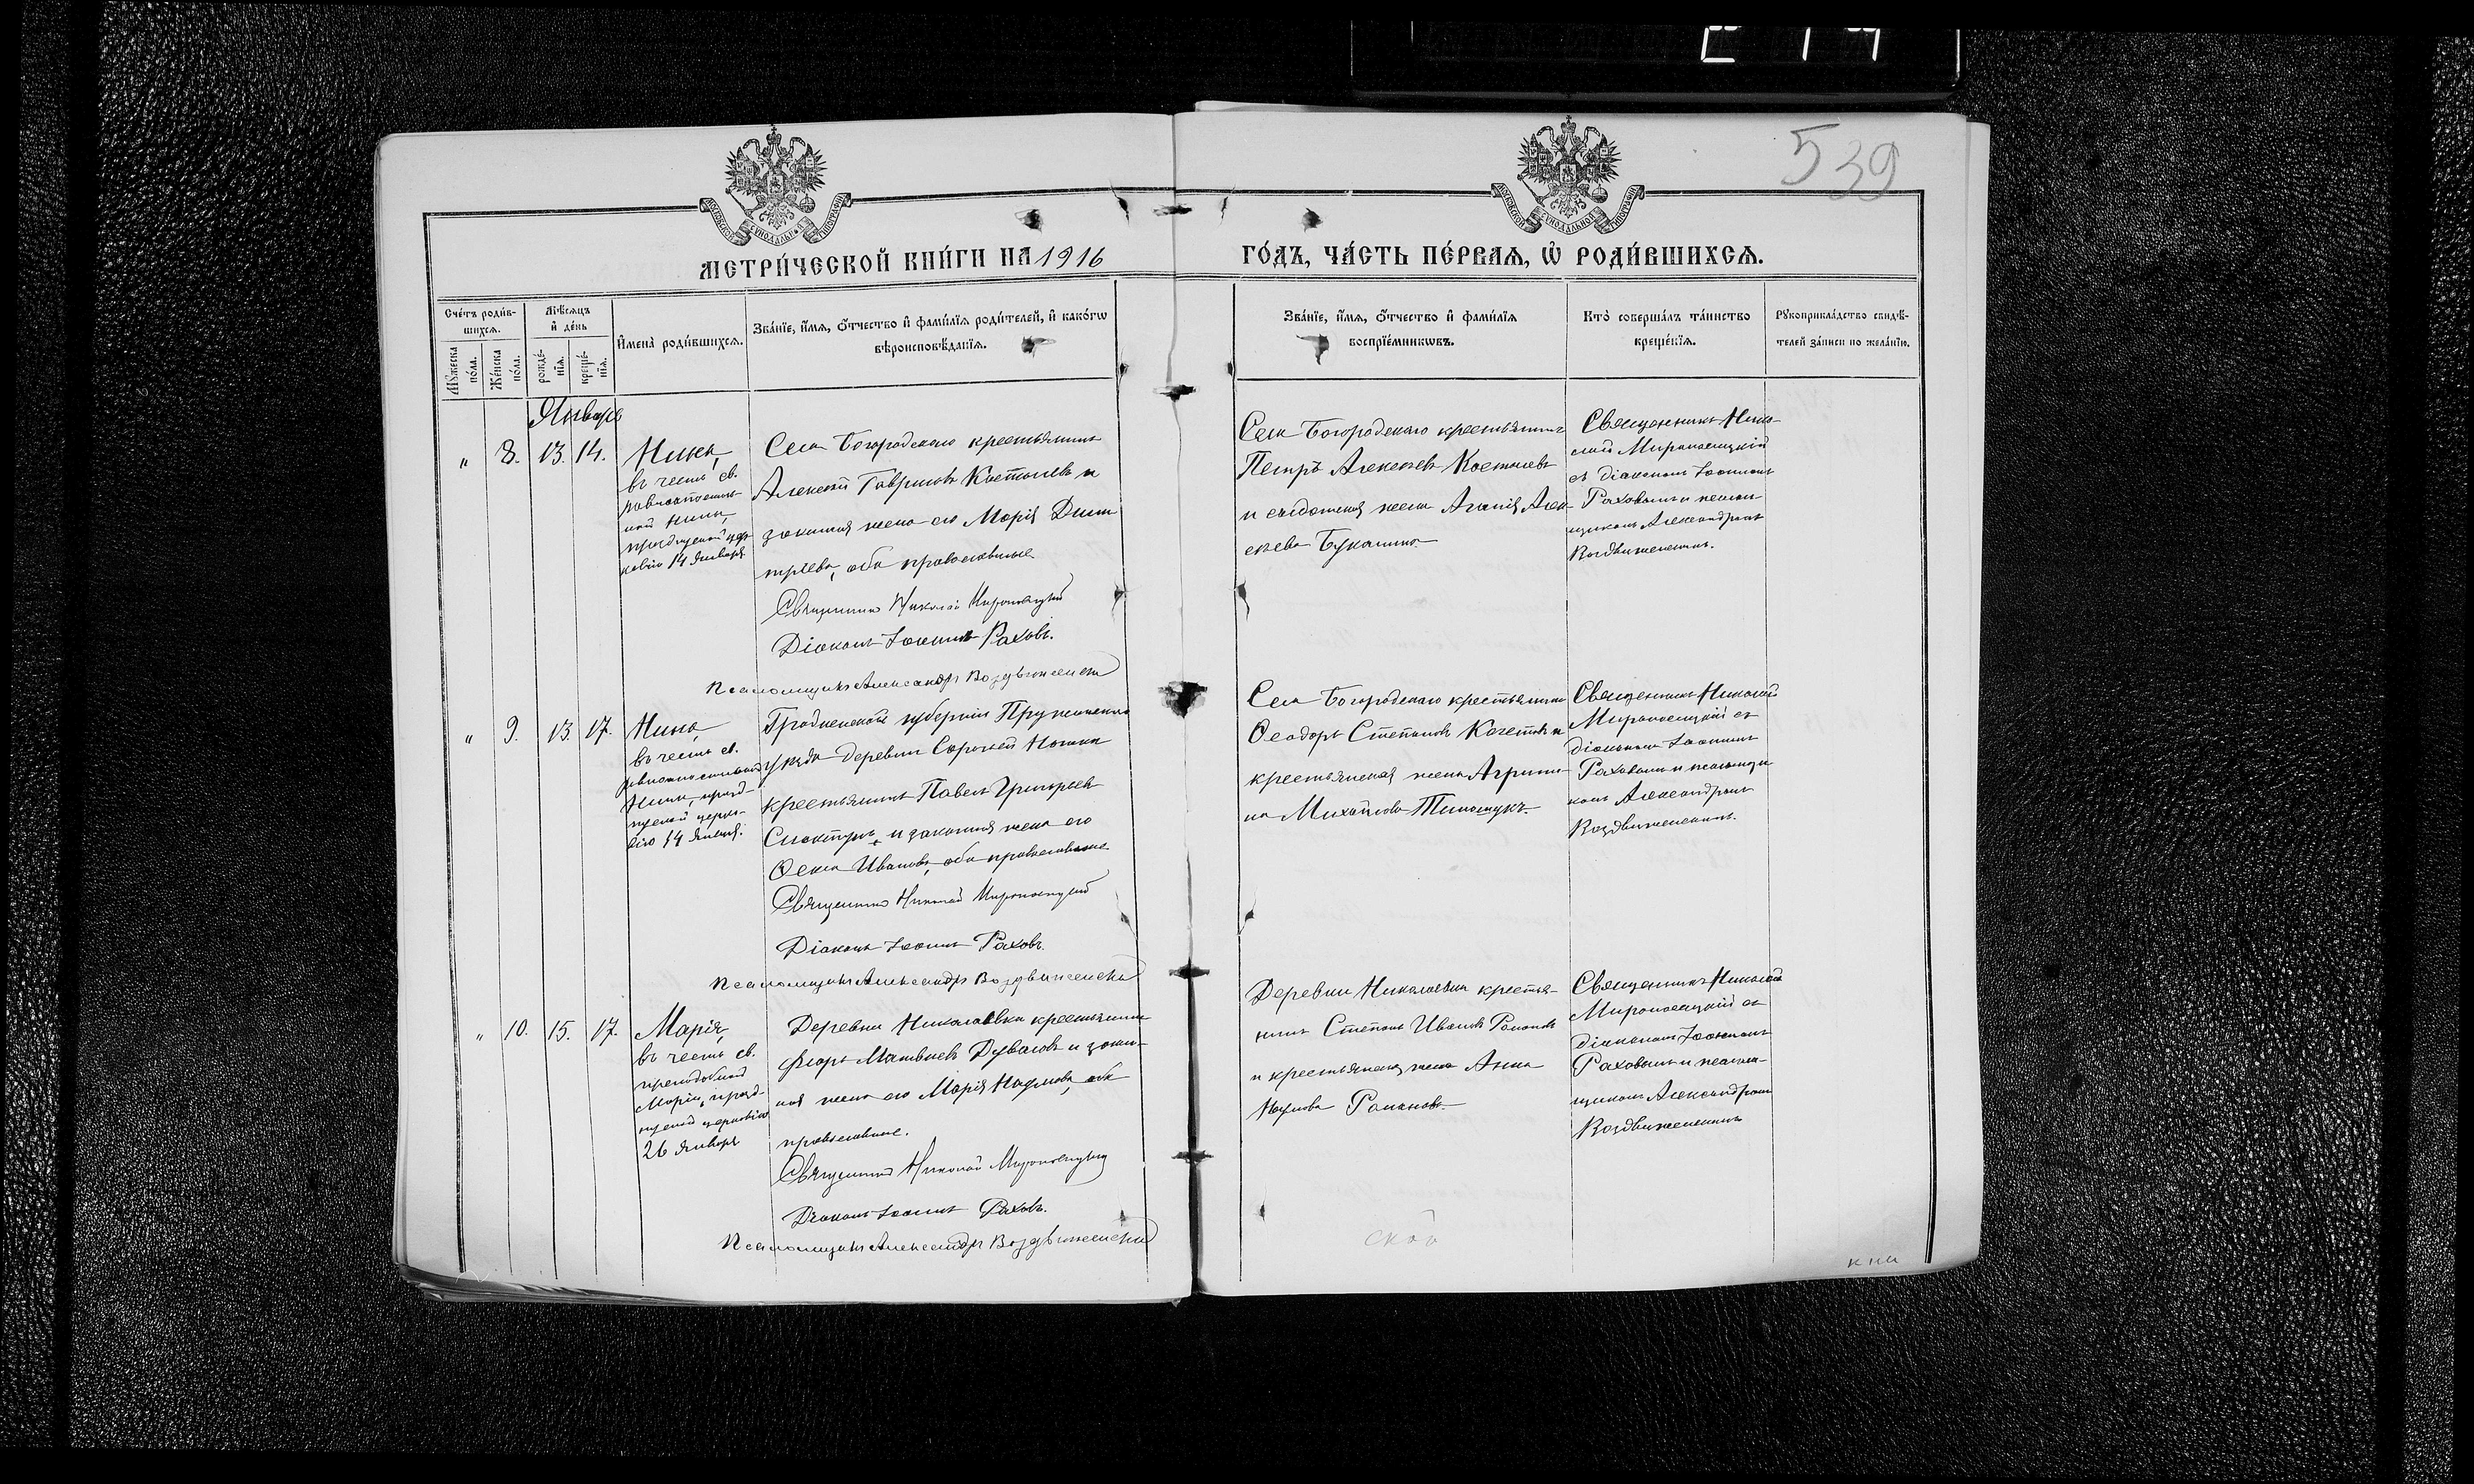 539
МЕТРИ́ЧЕСКОЙ КНИ́ГИ НА 1916
ГО́ДЪ, ЧА́СТЬ ПЕ́РВАѦ, Ѡ҆ РОДИ́ВШИХСѦ.
Сче́тъ роди́в-
шихсѧ.
Мꙋ́жеска
по́ла.
Же́нска
по́ла.
Мѣ́сѧцъ
и҆ де́нь
рожде́-
нїѧ.
креще́-
нїѧ.
И҆мена̀ роди́вшихсѧ.
Зва́нїе, и҆́мѧ, ѻ҆́тчество и҆ фами́лїѧ роди́телей, и҆ како́гѡ
вѣроисповѣ́данїѧ.
Зва́нїе, и҆́мѧ, ѻ҆́тчество и҆ фами́лїѧ
воспрїе́мникѡвъ.
Кто̀ соверша́лъ та́инство
креще́нїѧ.
Рꙋкоприкла́дство свидѣ́-
телей за́писи по жела́нїю.
Январь
" 8. 13. 14.
Нина,
въ честь св.
равноапостоль-
ной Нины,
празднуемой цер-
ковію 14 января
Села Богородскаго крестьянинъ
Алексѣй Гавриловъ и
законная жена его Марія Дими
тріева, оба православные
Священникъ Николай Мироносицкій
Діаконъ Іоаннъ Раховъ.
Псаломщикъ Александръ Воздвиженскій
Села Богородскаго крестьянинъ
Петръ Алексѣевъ
и солдатская жена Агапія Алек-
сѣева
Священникъ Нико-
лай Мироносицкій
съ діакономъ Іоанномъ
Раховымъ и псалом-
щикомъ Александромъ
Воздвиженскимъ.
" 9. 13. 17.
Нина,
въ честь св.
равноапостольной
Нины, празд-
нуемой церко-
вію 14 января.
Гродненской губерніи Пружанскаго
уѣзда деревни
крестьянинъ Павелъ Григорьевъ
и законная жена его
Иванова, оба православные
Священникъ Николай Мироносицкій
Діаконъ Іоаннъ Раховъ.
Псаломщикъ Александръ Воздвиженскій
Села Богородскаго крестьянинъ
Ѳеодоръ Степановъ и
крестьянская жена Агрипи-
на Михайлова Тимощукъ.
Священникъ Николай
Мироносицкій съ
діакономъ Іоанномъ
Раховымъ и псаломщи
комъ Александромъ
Воздвиженскимъ.
" 10. 15. 17.
Марія,
въ честь св.
преподобной
Маріи, празд-
нуемой церковію
26 января
Деревни Николаевки крестьянинъ
Матвѣевъ и закон-
ная жена его Марія Наумова, оба
православные.
Священникъ Николай Мироносицкій
Діаконъ Іоаннъ Раховъ.
Псаломщикъ Александръ Воздвиженскій
Деревни Николаевки крестья-
нинъ Степанъ Ивановъ Романовъ
и крестьянская жена Анна
Наумова Романова.
Священникъ Николай
Мироносицкій съ
діакономъ Іоанномъ
Раховымъ и псалом-
щикомъ Александромъ
Воздвиженскимъ
ской
кни